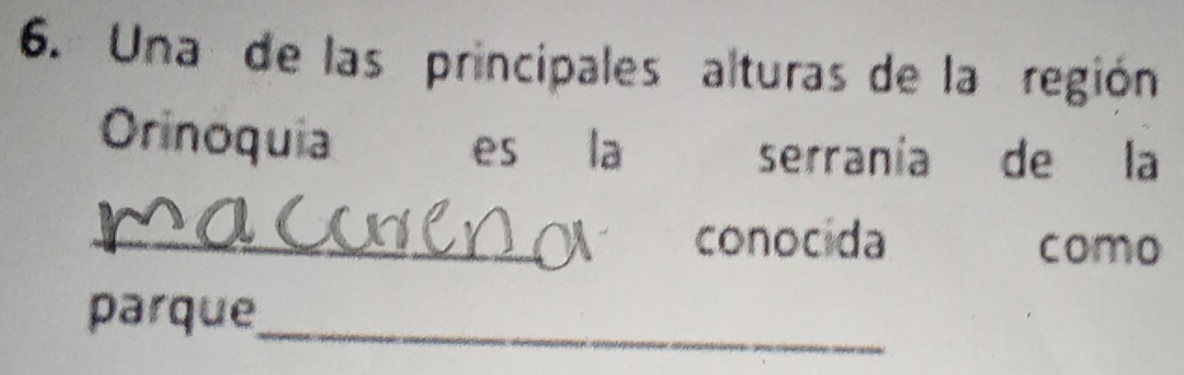 6. Una de las principales alturas de la región
Orinoquia es la serrania de la
maccurena conocida como
parque